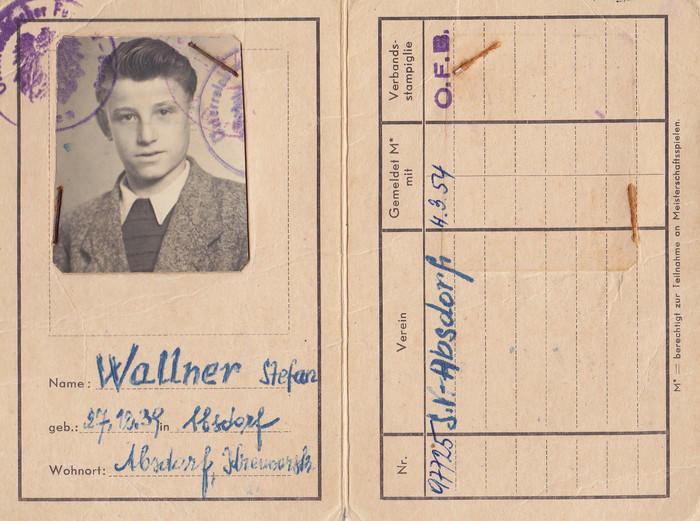 Name: Wallner Stefan
geb.: 27.12.39 in Absdorf
Wohnort: Absdorf,
Verbands-
stampiglie
O.F.B.
Gemeldet M*
mit
4.3.54
Verein
S.V.-Absdorf
Nr.
97725
M* = berechtigt zur Teilnahme an Meisterschaftsspielen.